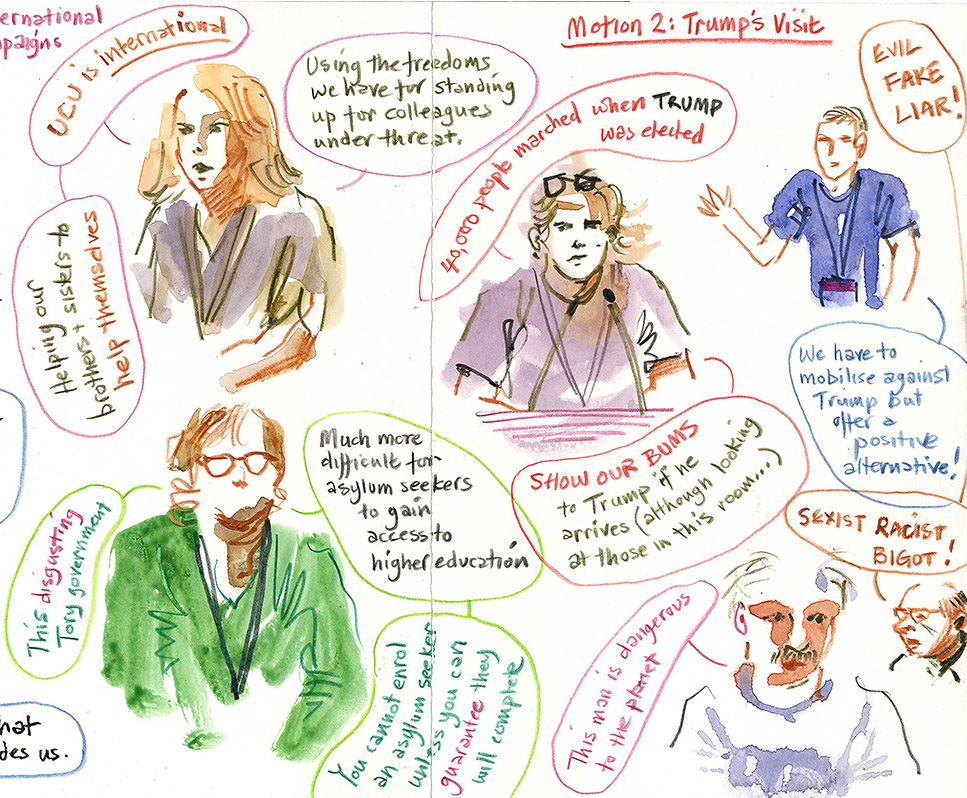 ernational
paigns
UCU is international
Using the freedoms
we have for standing
up for colleagues
under threat.
Helping our
brothers + sisters to
help themselves
Motion 2: Trump's Visit
40,000 people marched when TRUMP
was elected
EVIL
FAKE
LIAR!
We have to
mobilise against
Trump but
offer a
positive
alternative!
SHOW OUR BUMS
to Trump if he
arrives (although looking
at those in this room...)
SEXIST RACIST
BIGOT!
This man is dangerous
to the planet
This disgusting
Tory government
Much more
difficult for
asylum seekers
to gain
access to
higher education
You cannot enrol
an asylum seeker
unless you can
guarantee they
will complete
hat
des us.